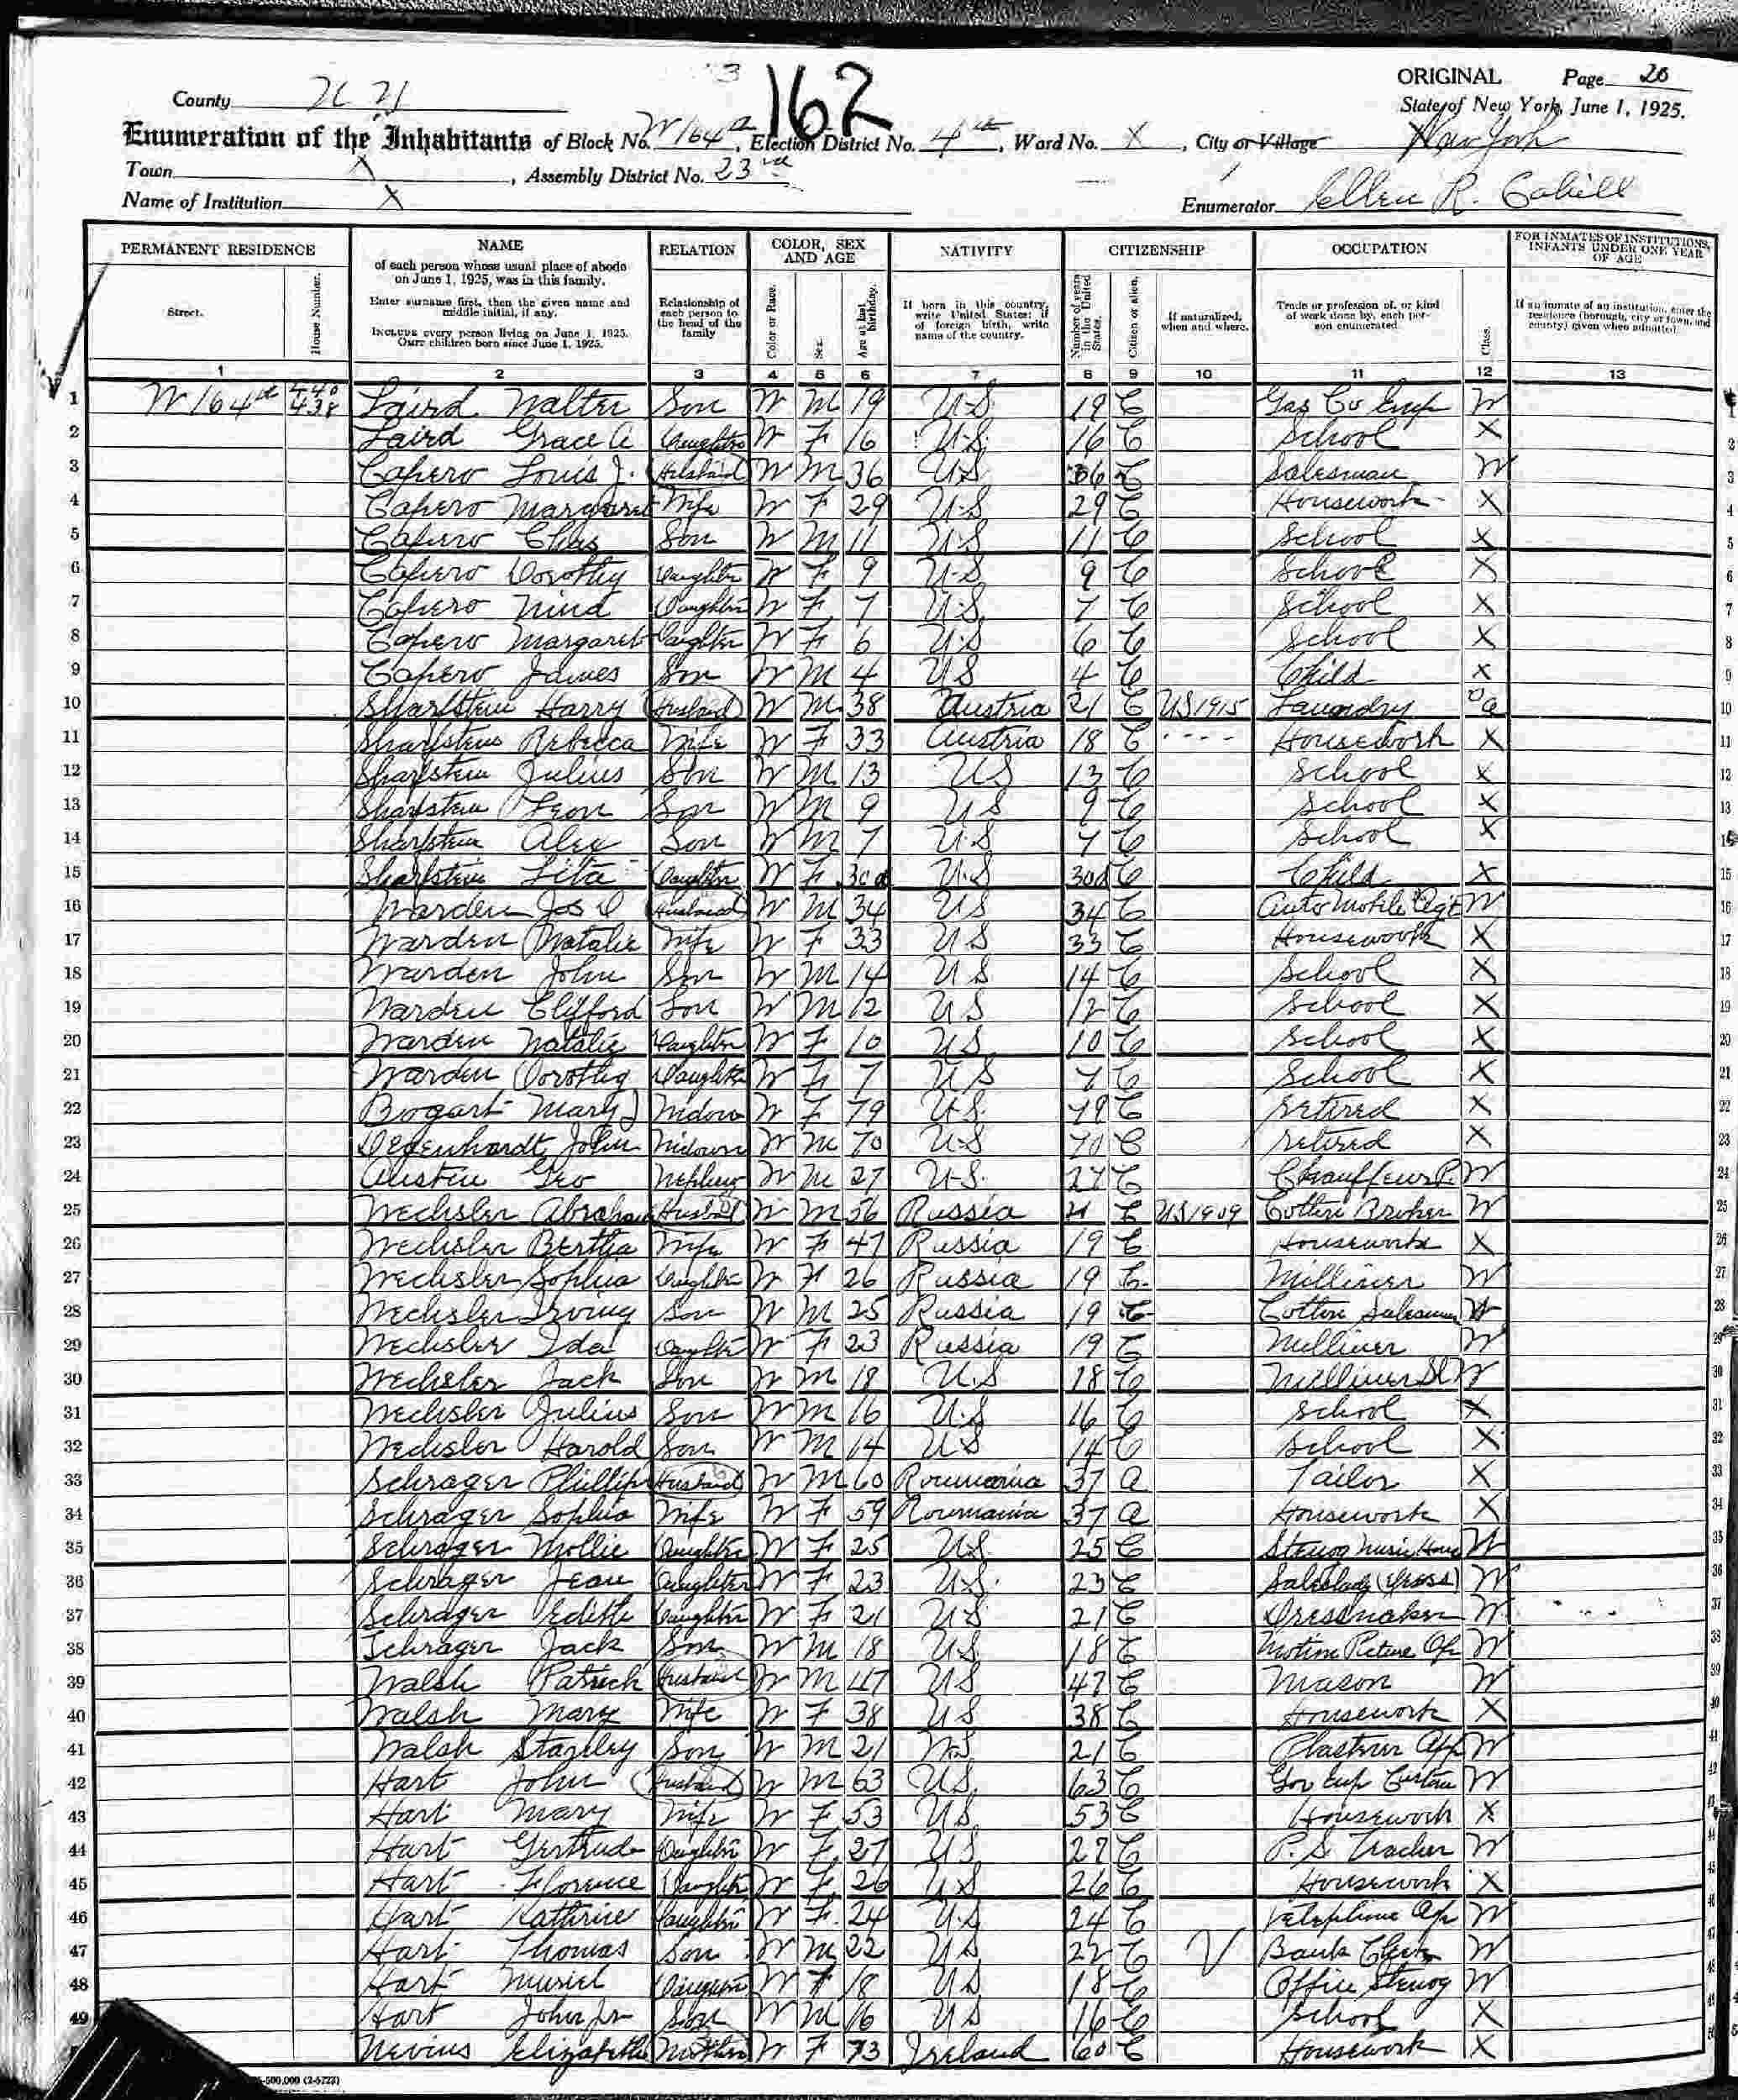 162
ORIGINAL Page 20
County
State of New York, June 1, 1925.
Enumeration of the Inhabitants of Block No. W 164th, Election District No. 4th, Ward No. X, City or Village New York
Town X, Assembly District No. 23rd
Name of Institution X Enumerator Ellen R. Cahill
PERMANENT RESIDENCE NAME RELATION COLOR, SEX AND AGE NATIVITY CITIZENSHIP OCCUPATION FOR INMATES OF INSTITUTIONS, INFANTS UNDER ONE YEAR OF AGE
Street. House Number. of each person whose usual place of abode on June 1, 1925, was in this family. Enter surname first, then the given name and middle initial, if any. INCLUDE every person living on June 1, 1925. OMIT children born since June 1, 1925. Relationship of each person to the head of the family Color or Race. Sex. Age at last birthday. If born in this country, write United States; if of foreign birth, write name of the country. Number of years in the United States. Citizen or alien. If naturalized, when and where. Trade or profession of, or kind of work done by, each person enumerated. Class. If an inmate of an institution, enter the residence (borough, city or town, and county) given when admitted.
1 2 3 4 5 6 7 8 9 10 11 12 13
1 W 164th 440 438 Laird Walter Son W M 19 U-S 19 C Gas Co Emp W
2 Laird Grace A Daughter W F 16 U-S. 16 C School X
3 Capero Louis J. Husband W M 36 US 36 C Salesman W
4 Capero Margaret Wife W F 29 U-S 29 C Housework X
5 Capero Chas Son W M 11 U-S 11 C School X
6 Capero Dorothy Daughter W F 9 U-S 9 C School X
7 Capero Nina Daughter W F 7 U-S 7 C School X
8 Capero Margaret Daughter W F 6 U-S 6 C School X
9 Capero James Son W M 4 US 4 C Child X
10 Sharfstein Harry Husband W M 38 Austria 21 C US 1915 Laundry Oa
11 Sharfstein Rebecca Wife W F 33 Austria 18 C - - - - Housework X
12 Sharfstein Julius Son W M 13 US 13 C School X
13 Sharfstein Leon Son W M 9 US 9 C School X
14 Sharfstein Alex Son W M 7 U-S 7 C School X
15 Sharfstein Lita Daughter W F 30d U-S 30d C Child X
16 Warden Jos Husband W M 34 US 34 C Auto Mobile Agt W
17 Warden Natalie Wife W F 33 US 33 C Housework X
18 Warden John Son W M 14 US 14 C School X
19 Warden Clifford Son W M 12 US 12 C School X
20 Warden Natalie Daughter W F 10 US 10 C School X
21 Warden Dorothy Daughter W F 7 US 7 C School X
22 Bogart Mary J Widow W F 79 U-S. 79 C retired X
23 Degenhardt John Widower W M 70 U-S 70 C retired X
24 Austin Geo Nephew W M 27 U-S. 27 C Chauffeur P. W
25 Wechsler Abraham Husband W M 56 Russia 21 C US 1909 Cotton Broker W
26 Wechsler Bertha Wife W F 47 Russia 19 C Housework X
27 Wechsler Sophia Daughter W F 26 Russia 19 C. Milliner W
28 Wechsler Irving Son W M 25 Russia 19 C Cotton Salesman W
29 Wechsler Ida Daughter W F 23 Russia 19 C Milliner W
30 Wechsler Jack Son W M 18 U.S 18 C Milliner Sl W
31 Wechsler Julius Son W M 16 U.S 16 C School X
32 Wechsler Harold Son W M 14 US 14 C School X
33 Schrager Phillip Husband W M 60 Roumania 37 A Tailor X
34 Schrager Sophia Wife W F 59 Roumania 37 A Housework X
35 Schrager Mollie Daughter W F 25 US 25 C Stenog Music House W
36 Schrager Jean Daughter W F 23 U.S. 23 C Saleslady (Dress) W
37 Schrager Edith Daughter W F 21 US 21 C Dressmaker W
38 Schrager Jack Son W M 18 US. 18 C Motion Picture Op W
39 Walsh Patrick Husband W M 47 US 47 C Mason W
40 Walsh Mary Wife W F 38 US 38 C Housework X
41 Walsh Stanley Son W M 21 US 21 C Plasterer App W
42 Hart John Husband W M 63 US. 63 C Gov Emp Custom W
43 Hart Mary Wife W F 53 US 53 C Housework X
44 Hart Gertrude Daughter W F 27 US 27 C P. S. Teacher W
45 Hart Florence Daughter W F 26 US 26 C Housework X
46 Hart Kathrine Daughter W F 24 U.S 24 C Telephone Op W
47 Hart Thomas Son W M 22 US 22 C V Bank Clerk W
48 Hart Muriel Daughter W F 18 US 18 C Office Stenog W
49 Hart John Jr Son W M 16 US 16 C School X
Nevins Elizabeth Mother W F 73 Ireland 60 C Housework X
-500,000 (2-5723)